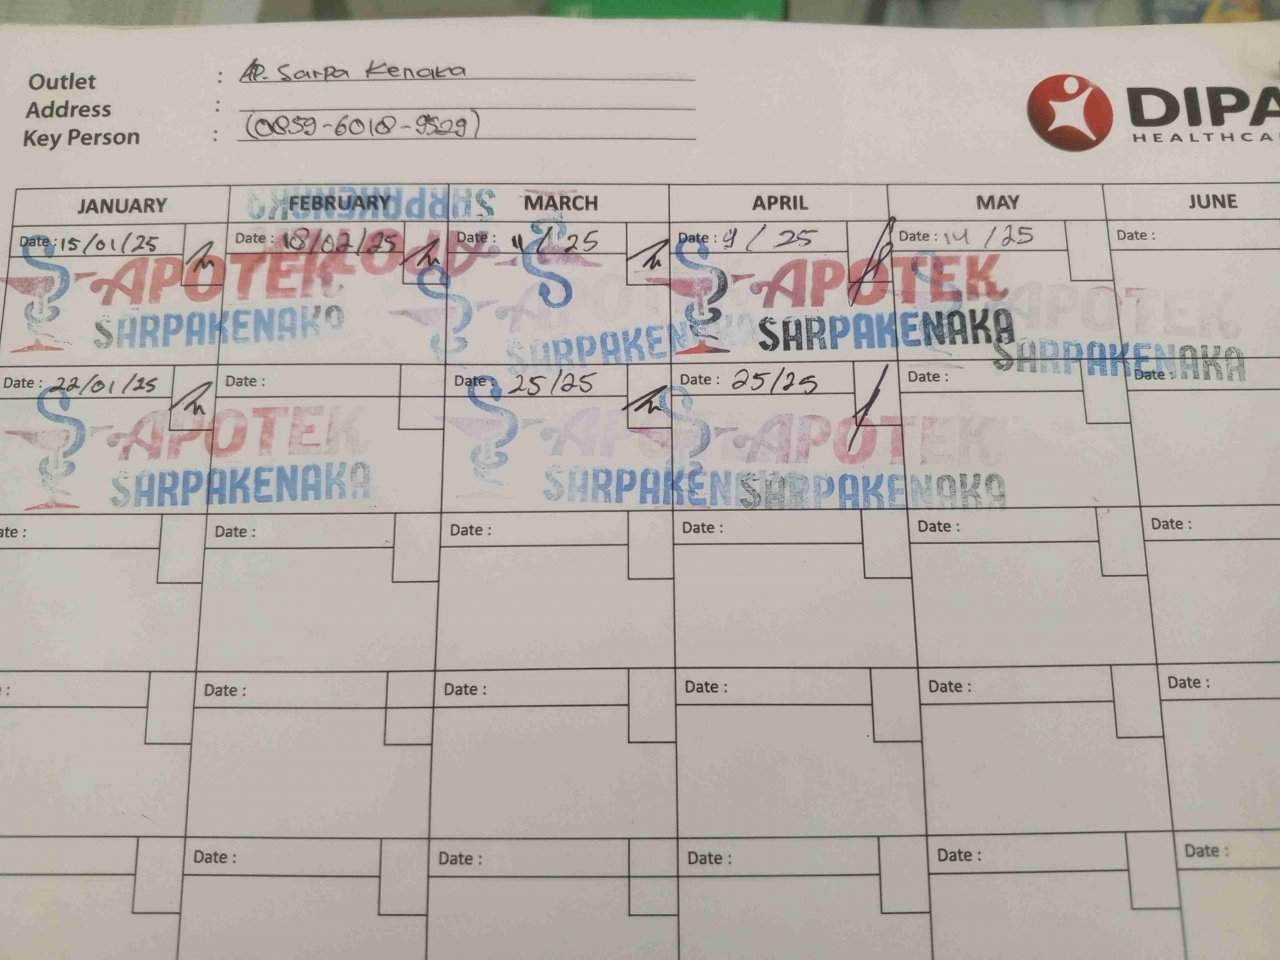 Outlet : AP. Sarpa Kenaka
Address :
Key Person : (0859-6018-9529)
DIPA
HEALTHCA
JANUARY FEBRUARY MARCH APRIL MAY JUNE
SARPAKENAKA
APOTEK
Date : 15/01/25 Date : 18/02/25 Date : 11 / 25 Date : 9 / 25 Date : 14 / 25 Date :
APOTEK APOTEK APOTEK APOTEK
SARPAKENAKA SARPAKEN SARPAKENAKA SARPAKENAKA
Date : 22/01/25 Date : Date : 25/25 Date : 25/25 Date : Date :
APOTEK APOTEK
SARPAKENAKA SARPAKEN SARPAKENAKA
ate : Date : Date : Date : Date : Date :
: Date : Date : Date : Date : Date :
Date : Date : Date : Date : Date :